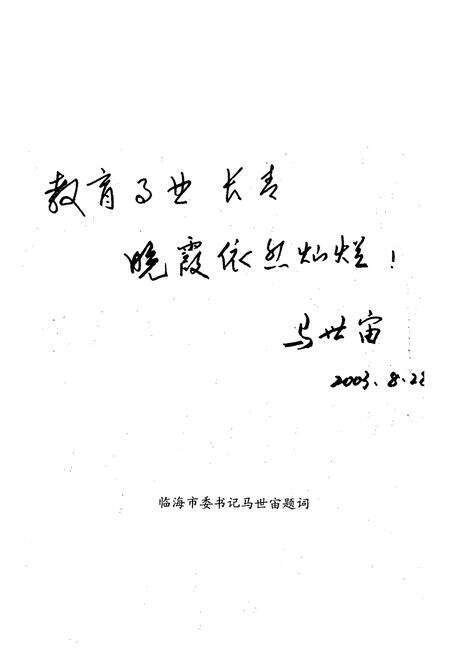 教育事业长青
晚霞依然灿烂！
马世宙
2003.8.22
临海市委书记马世宙题词